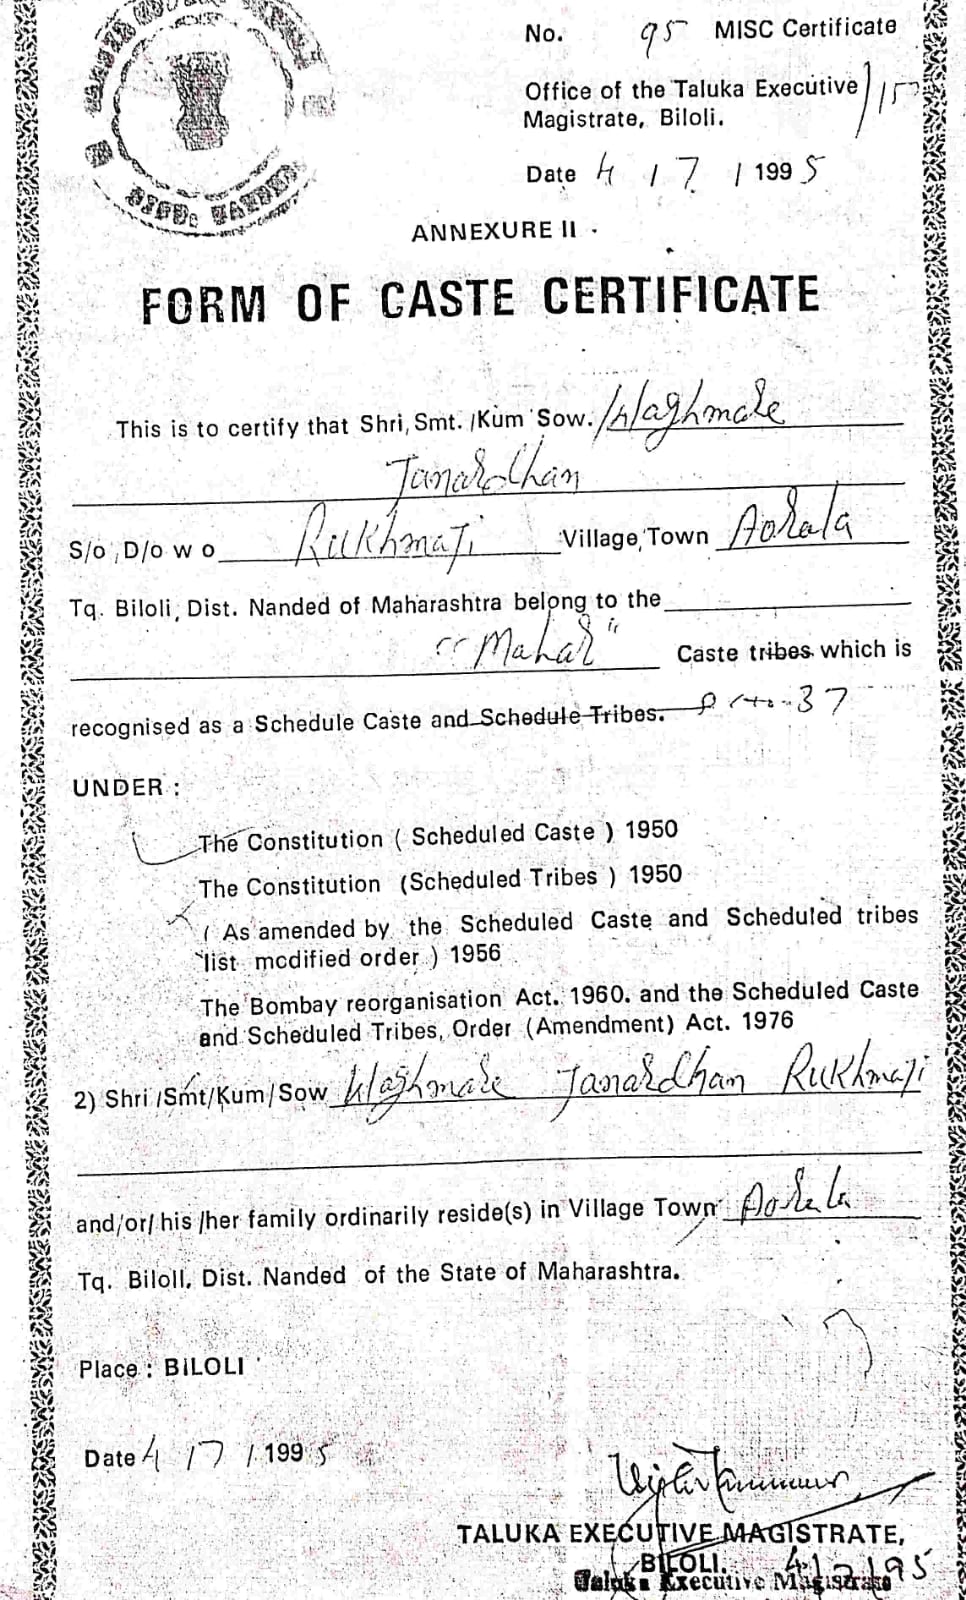 No. 95 MISC Certificate
Office of the Taluka Executive
Magistrate, Biloli.
Date 4 / 7 / 1995
ANNEXURE II .
FORM OF CASTE CERTIFICATE
This is to certify that Shri, Smt. /Kum Sow. Waghmare
Janardhan
S/o , D/o w o Rukhmaji Village, Town Aorala
Tq. Biloli, Dist. Nanded of Maharashtra belong to the
"Mahar" Caste tribes which is
recognised as a Schedule Caste and Schedule Tribes. 37
UNDER :
The Constitution ( Scheduled Caste ) 1950
The Constitution (Scheduled Tribes ) 1950
( As amended by the Scheduled Caste and Scheduled tribes
list mcdified order ) 1956
The Bombay reorganisation Act. 1960. and the Scheduled Caste
and Scheduled Tribes, Order (Amendment) Act. 1976
2) Shri /Smt/Kum/Sow Waghmare Janardhan Rukhmaji
and/or/ his /her family ordinarily reside(s) in Village Town Aorala
Tq. Biloli. Dist. Nanded of the State of Maharashtra.
Place : BILOLI
Date 4 / 7 / 1995
TALUKA EXECUTIVE MAGISTRATE,
BILOLI. 4/7/95
Taluka Executive Magistrate